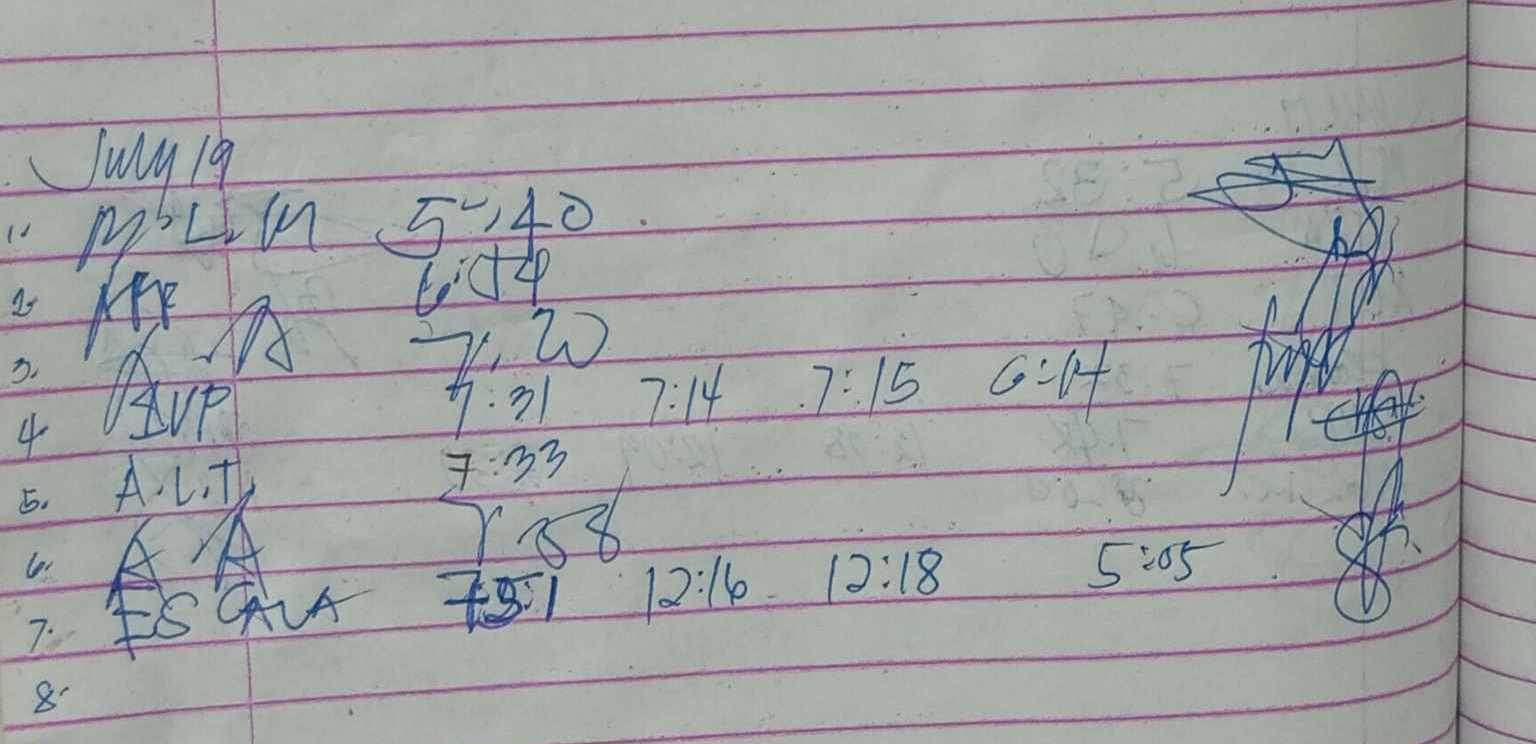 July 19
1. M.L.M 5:40
2.
3. A.A 7:20
4. BVP 7:31 7:14 7:15 6:14
5. A.L.T. 7:33
6. A A 7:58
7. ESCALA 12:16 12:18 5:05
8.